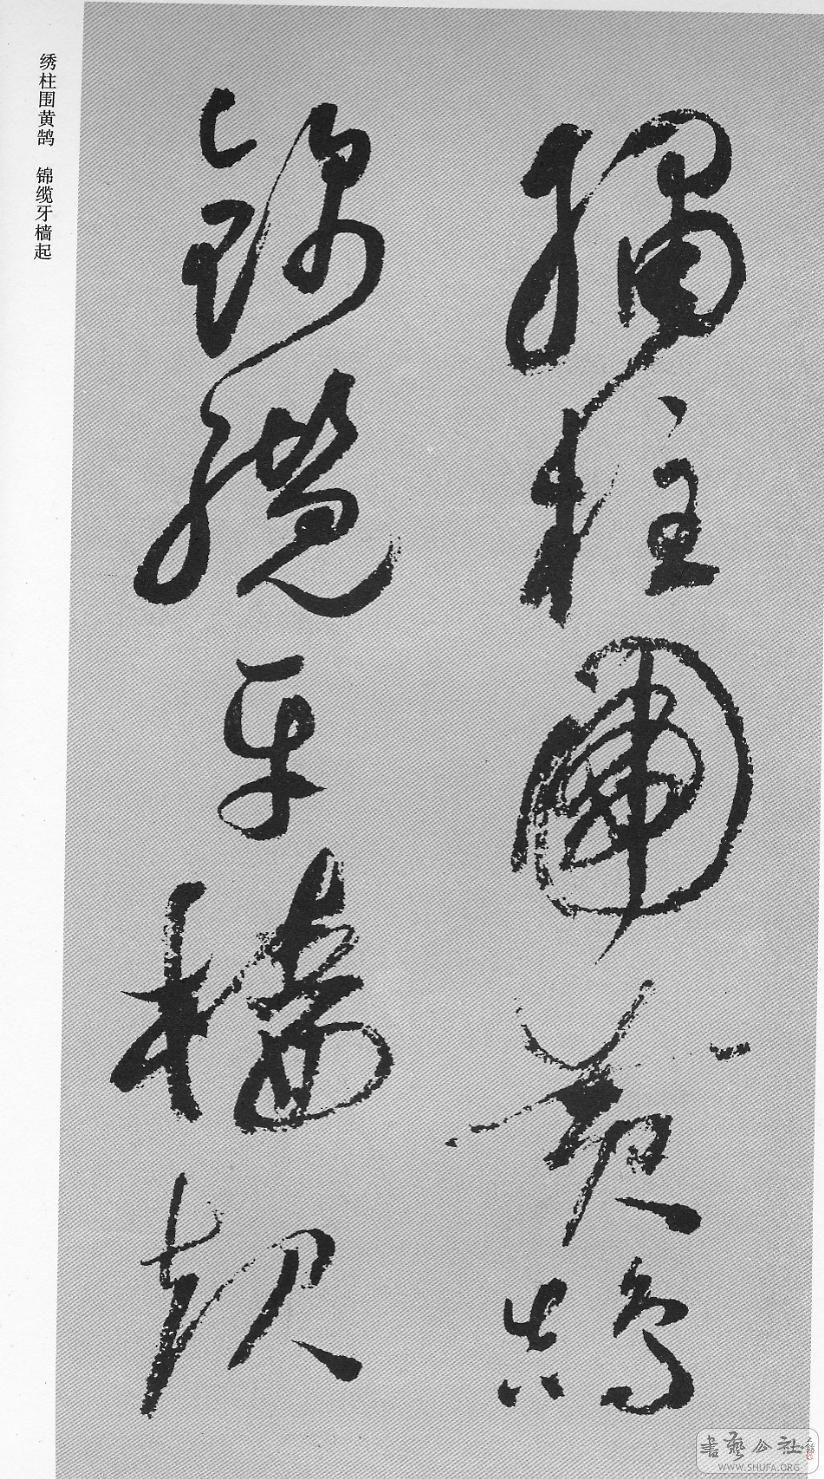 繡柱圍黃鵠
錦纜牙檣起
绣柱围黄鹄 锦缆牙樯起
書藝公社
WWW.SHUFA.ORG